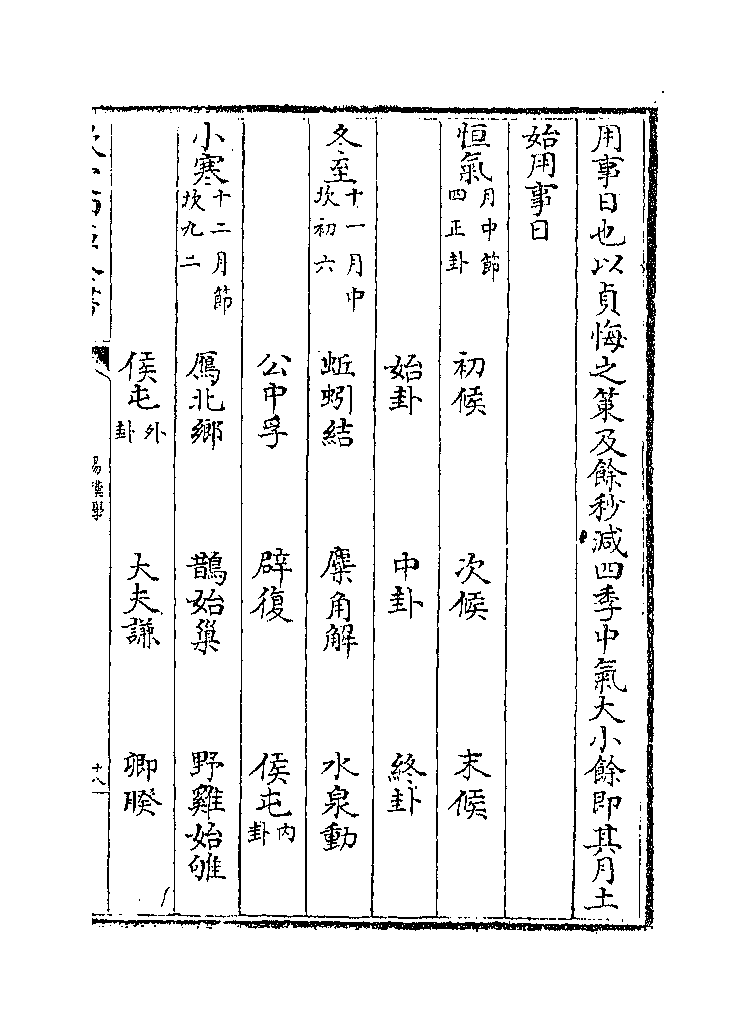 用事日也以貞悔之策及餘秒減四季中氣大小餘即其月土
始用事日
恒氣月中節四正卦 初候 次候 末候
始卦 中卦 終卦
冬至十一月中坎初六 蚯蚓結 麋角解 水泉動
公中孚 辟復 侯屯內卦
小寒十二月節坎九二 鴈北鄉 鵲始巢 野雞始雊
侯屯外卦 大夫謙 卿睽
易漢學
十八